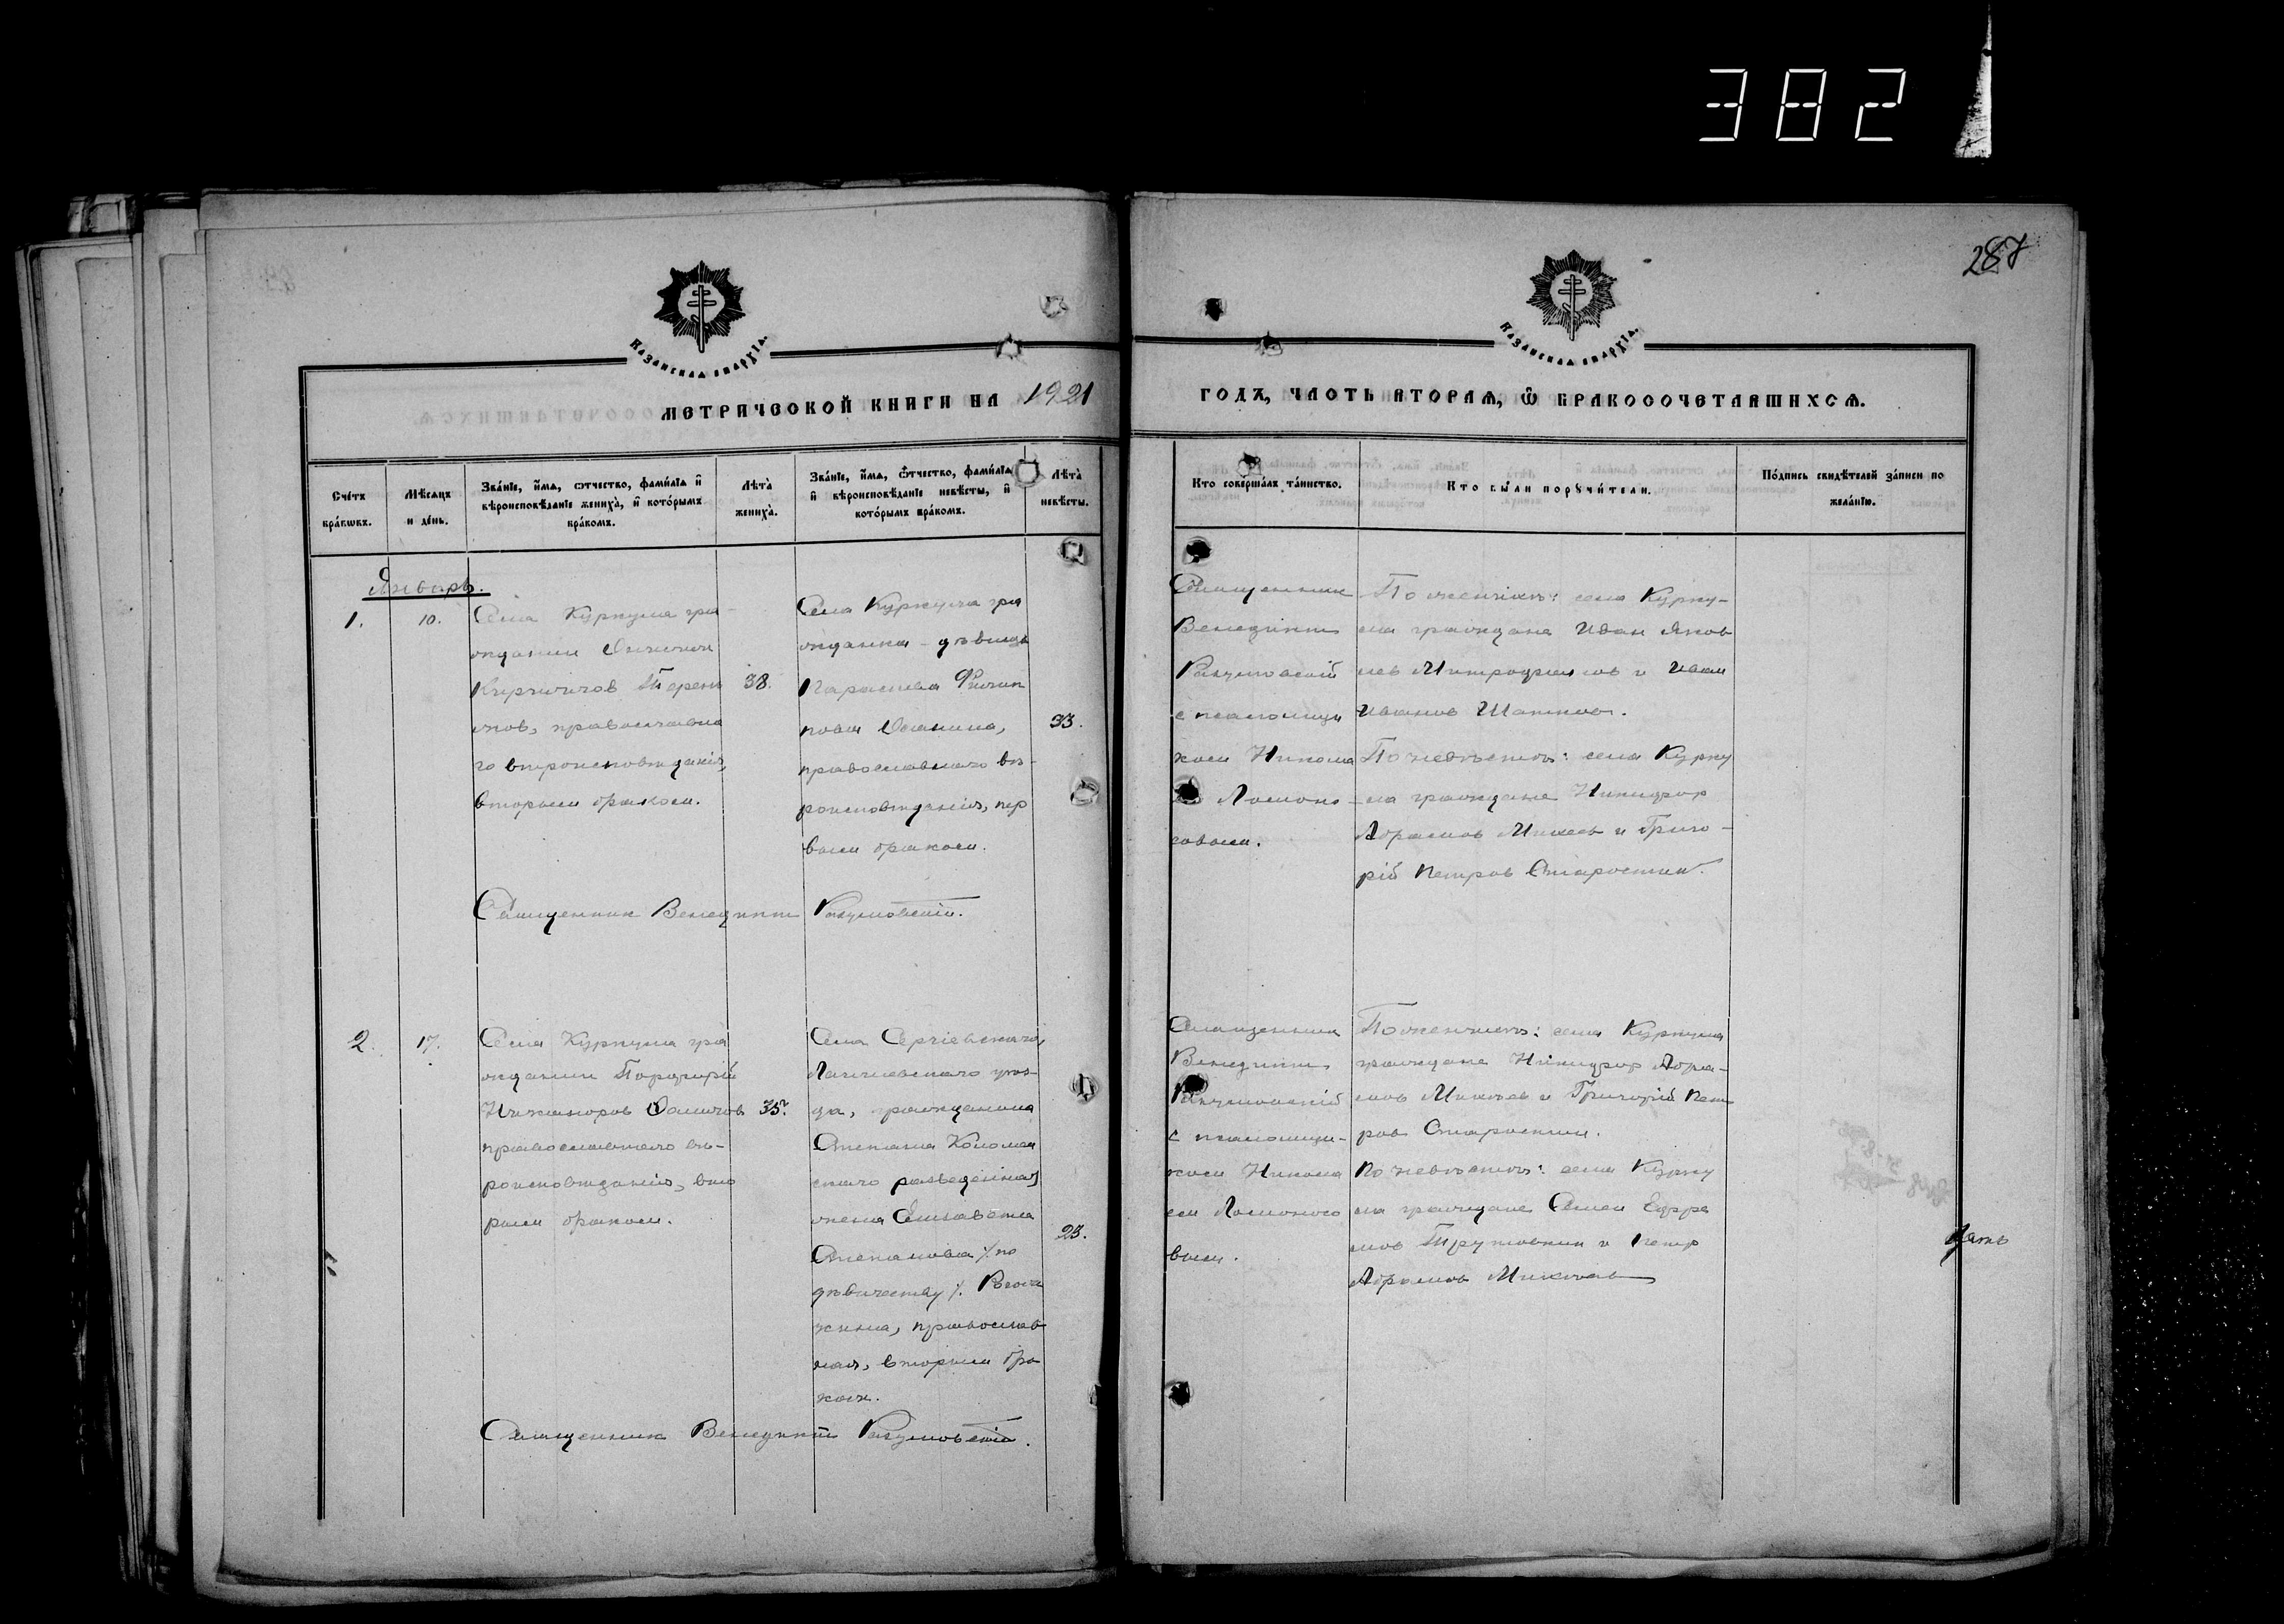 382
287
КАЗАНСКАЯ ЕПАРХІЯ.
КАЗАНСКАЯ ЕПАРХІЯ.
МЕТРИЧЕСКОЙ КНИГИ НА 1921
ГОДЪ, ЧАСТЬ ВТОРАЯ, Ѿ БРАКОСОЧЕТАВШИХСЯ.
Сче́тъ бра́кѡвъ.
Мѣ́сяцъ и де́нь.
Зва́нїе, и́мя, ѻ́тчество, фами́лїа и҆ вѣроисповѣ́данїе жениха̀, и҆ кото́рымъ бра́комъ.
Лѣта̀ жениха̀.
Зва́нїе, и́мя, ѻ́тчество, фами́лїа и҆ вѣроисповѣ́данїе невѣ́сты, и҆ кото́рымъ бра́комъ.
Лѣта̀ невѣ́сты.
Кто соверша́лъ та́инство.
Кто бы́ли порꙋчи́тели.
По́дпись свидѣ́телей за́писи по жела́нїю.
Январь.
1.
10.
Села Куркула гра-
жданин
38.
го вѣроисповѣданія,
вторым браком.
Села Куркула гра
жданка - дѣвица
Параскева Филип
пова
33.
православнаго вѣ-
роисповѣданія, пер
вым браком.
Священник
Венедикт
Разумовский
с псаломщи
ком Никола
ем Ломоно
совым.
По женихѣ: села Курку-
ла граждане Иван Яков
лев Митрофанов и Иван
Иванов
По невѣстѣ: села Курку
ла граждане Никифор
Абрамов и Григо-
рій Петров Старостин.
Священник Венедикт Разумовский.
2.
17.
Села Куркула гра
жданин Порфирій
Никаноров
35.
православнаго вѣ-
роисповѣданія, вто
рым браком.
Села Сергіевскаго,
Лаишевскаго уѣз-
да, гражданина
Степана
разведенная
жена Елизавета
23.
Степанова /по
дѣвичеству/.
православ
ная, вторым бра
ком.
Священник
Венедикт
Разумовскій
с псаломщи-
ком Никола
ем Ломоносо
вым.
По женихѣ: села Куркула
граждане Никифор Абра-
мов и Григорій Пет
ров Старостин.
По невѣстѣ: села Курку
ла граждане Семен Ефре
мов и Петр
Абрамов
Священник Венедикт Разумовскій.